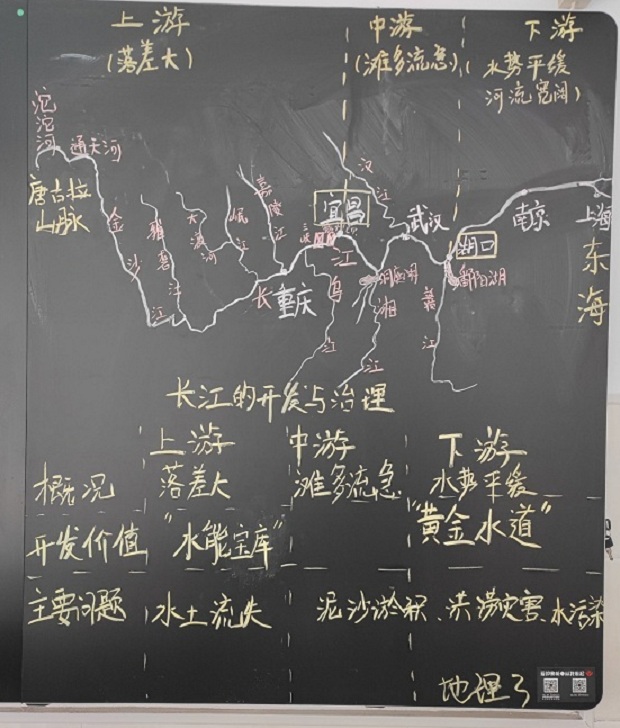 上游 中游 下游
(落差大) (滩多流急) 水势平缓
河流宽阔)
沱沱河 通天河
唐古拉
山脉
金沙江
雅砻江
大渡河
岷江
嘉陵江
汉江
宜昌
三峡
武汉
湖口
南京
上海
东海
长江
重庆
乌江
洞庭湖
湘江
赣江
鄱阳湖
长江的开发与治理
上游 中游 下游
概况 落差大 滩多流急 水势平缓
开发价值 "水能宝库" "黄金水道"
主要问题 水土流失 泥沙淤积、洪涝灾害、水污染
地理3